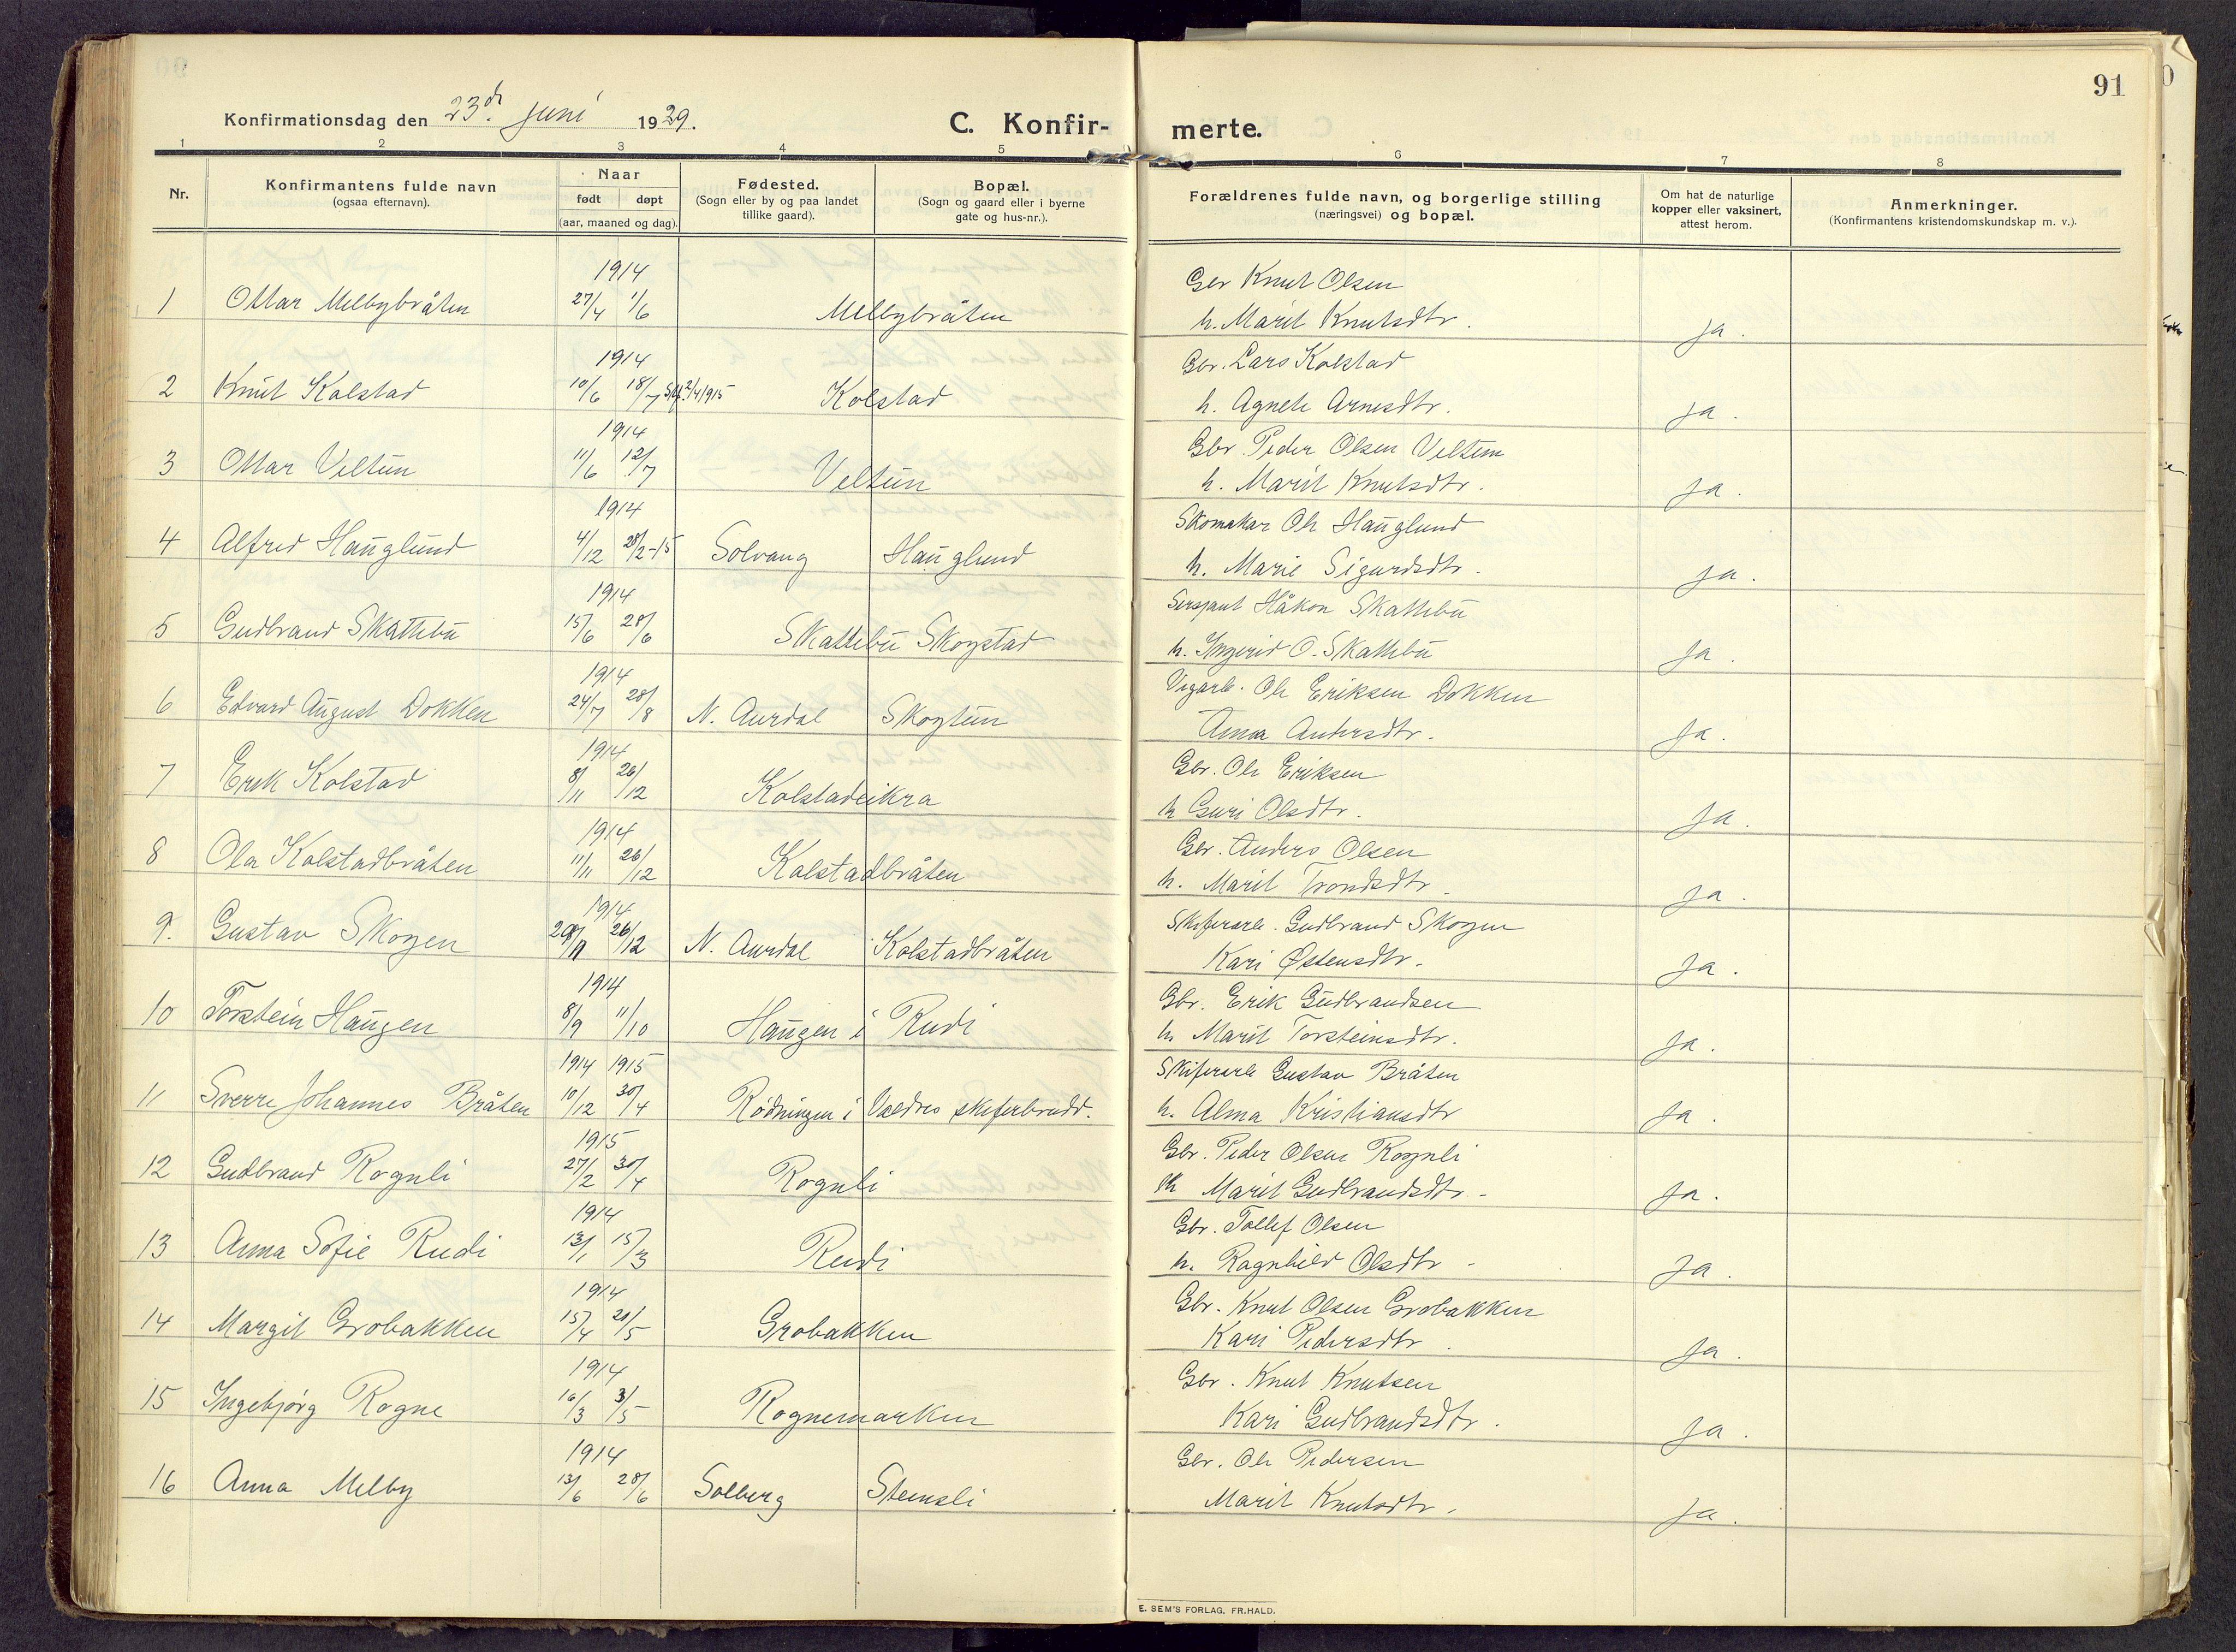 91
Konfirmationsdag den 23de juni 1929.
C. Konfirmerte.
1 2 3 4 5 6 7 8
Nr.
Konfirmantens fulde navn
(ogsaa efternavn).
Naar
født døpt
(aar, maaned og dag).
Fødested.
(Sogn eller by og paa landet
tillike gaard).
Bopæl.
(Sogn og gaard eller i byerne
gate og hus-nr.).
Forældrenes fulde navn, og borgerlige stilling
(næringsvei) og bopæl.
Om hat de naturlige
kopper eller vaksinert,
attest herom.
Anmerkninger.
(Konfirmantens kristendomskundskap m. v.).
1914 Gbr Knut Olsen
1 Ottar Melbybråten 27/4 1/6 Melbybråten h. Marit Knutsdtr. ja.
1914 Gbr. Lars Kolstad
2 Knut Kolstad 10/6 18/7 2/4 1915 Kolstad h. Agnete Arnesdtr. ja.
1914 Gbr. Peder Olsen Veltun
3 Ottar Veltun 11/6 12/7 Veltun h. Marit Knutsdtr. ja.
1914 Skomakar Ole Hauglund
4 Alfred Hauglund 4/12 28/2-15 Solvang Hauglund h. Marie Sigurdsdtr. ja.
1914 Sersjant Håkon Skattebu
5 Gudbrand Skattebu 15/6 28/6 Skattebu Skogstad h. Ingerid O. Skattebu ja.
1914 Vegarb. Ole Eriksen Dokken
6 Edvard August Dokken 24/7 28/8 N. Aurdal Skogtun Anna Andersdtr. ja.
1914 Gbr. Ole Eriksen
7 Erik Kolstad 8/11 26/12 Kolstadeikra h Guri Olsdtr. ja.
1914 Gbr. Anders Olsen
8 Ola Kolstadbråten 11/11 26/12 Kolstadbråten h. Marit Trondsdtr. ja.
1914 Skiferarb. Gudbrand Skogen
9. Gustav Skogen 29/11 26/12 N. Aurdal Kolstadbråten Kari Østensdtr. ja.
1914 Gbr. Erik Gudbrandsen
10 Torstein Haugen 8/9 11/10 Haugen i Rudi h. Marit Torsteinsdtr. ja.
1914 1915 Skiferarb Gustav Bråten
11 Sverre Johannes Bråten 10/12 30/4 Rødningen i Valdres skiferbrudd. h. Alma Kristiansdtr ja.
1915 Gbr. Peder Olsen Rognli
12 Gudbrand Rognli 27/2 30/4 Rognli h Marit Gudbrandsdtr. ja.
1914 Gbr. Tollef Olsen
13 Anna Sofie Rudi 13/1 15/3 Rudi h. Ragnhild Olsdtr ja.
1914 Gbr. Knut Olsen Grobakken
14 Margit Grobakken 15/4 21/5 Grobakken Kari Pedersdtr. ja.
1914 Gbr. Knut Knutsen
15 Ingebjørg Rogne 16/3 31/5 Rognemarken Kari Gudbrandsdtr. ja.
1914 Gbr. Ole Pedersen
16 Anna Melby 13/6 28/6 Solberg Steinsli Marit Knutsdtr. ja.
E. SEM'S FORLAG, FR.HALD.